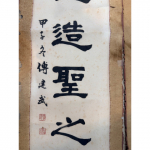 造聖之
甲子冬傅建武